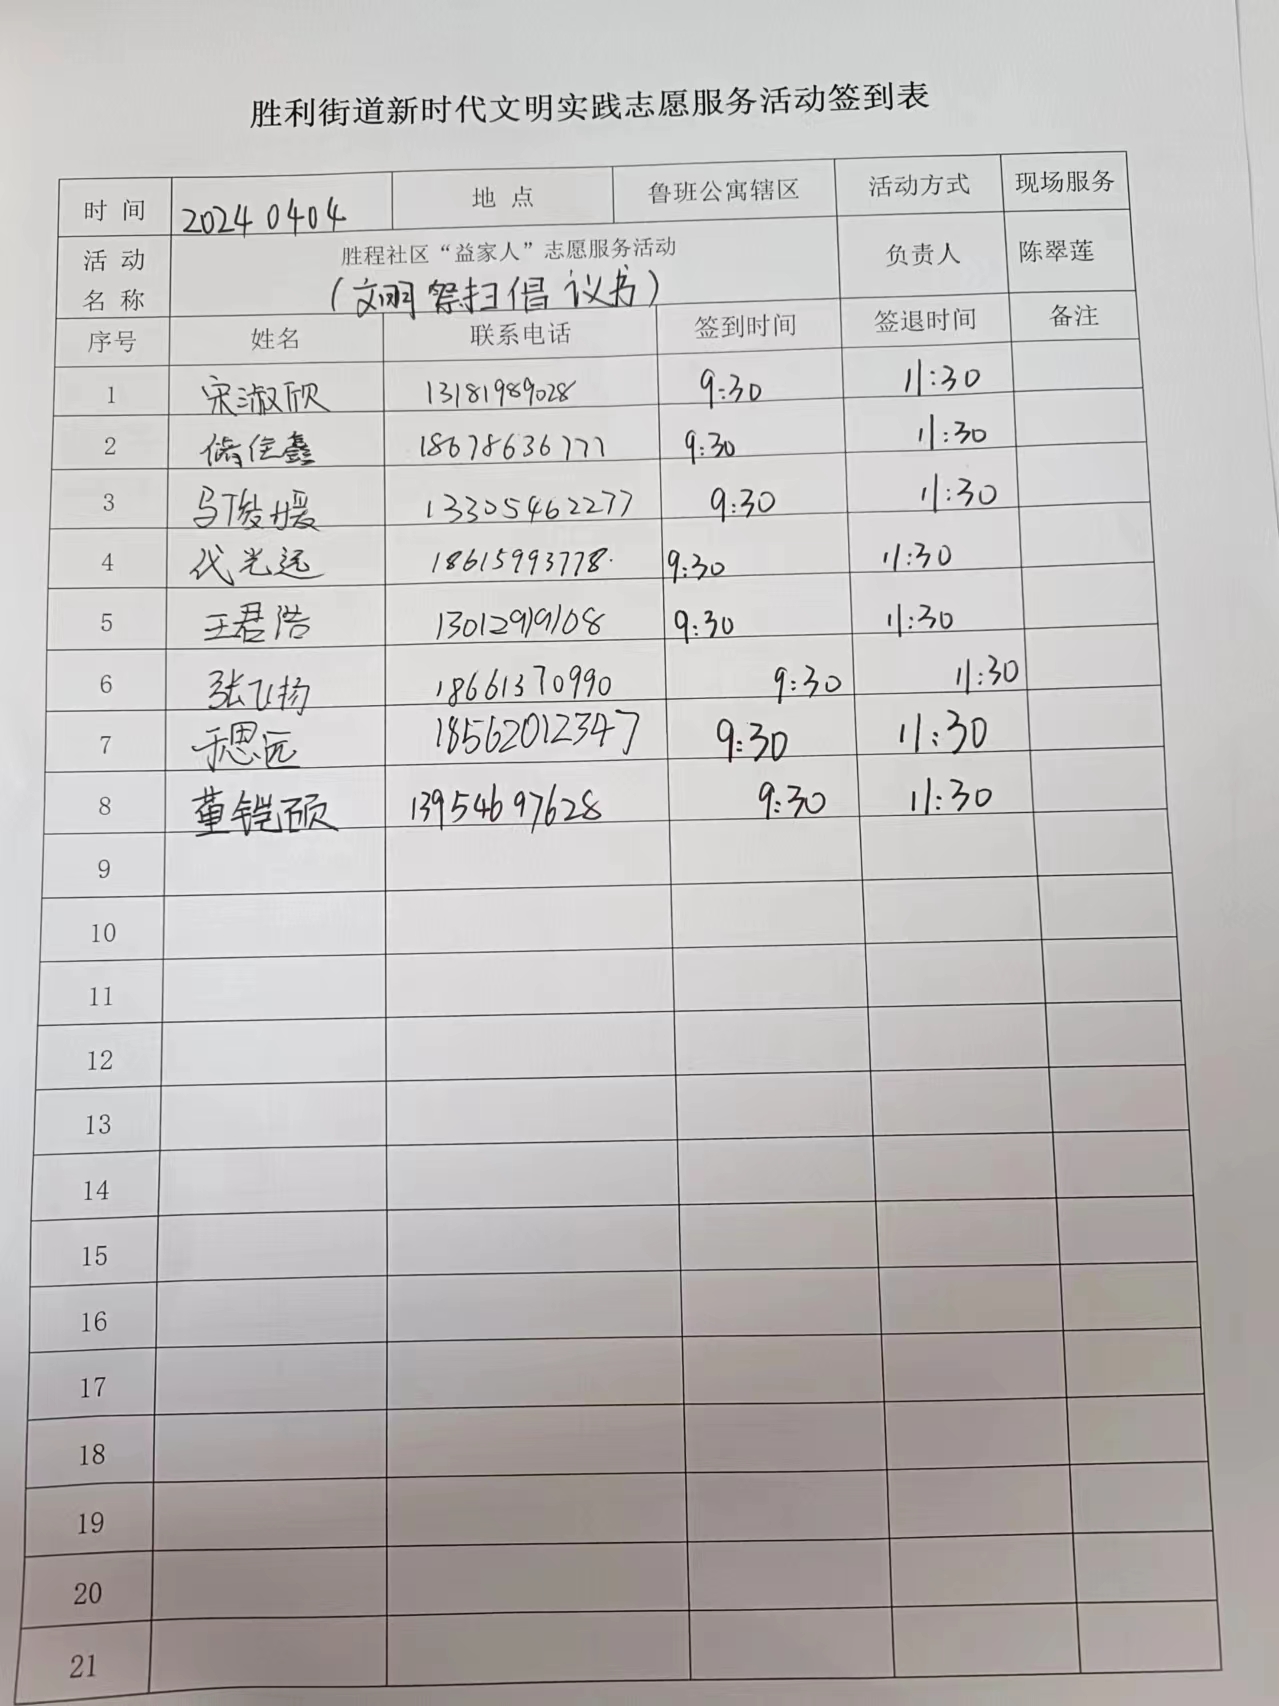 胜利街道新时代文明实践志愿服务活动签到表
时 间 20240404 地 点 鲁班公寓辖区 活动方式 现场服务
活 动 名 称 胜程社区“益家人”志愿服务活动 负责人 陈翠莲
(文明祭扫倡议书)
序号 姓名 联系电话 签到时间 签退时间 备注
1 宋淑欣 13181989028 9:30 11:30
2 18678636777 9:30 11:30
3 马俊媛 13305462277 9:30 11:30
4 代光远 18615993778 9:30 11:30
5 王君浩 13012919108 9:30 11:30
6 张飞扬 18661370990 9:30 11:30
7 于思远 18562012347 9:30 11:30
8 董铠硕 13954697628 9:30 11:30
9
10
11
12
13
14
15
16
17
18
19
20
21